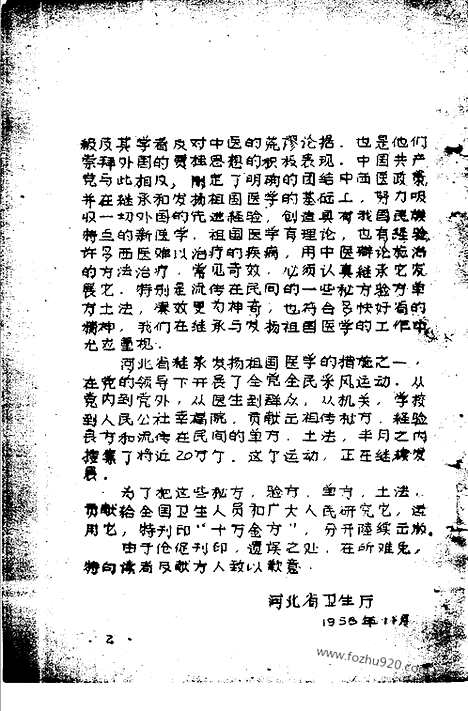 级及其学者反对中医的荒谬论据．也是他们
崇拜外国的思想的积极表现．中国共产
党与此相反，制定了明确的团结中西医政策
并在继承和发扬祖国医学的基础上，努力吸
收一切外国的先进经验，创造具有我国民族
特点的新医学．祖国医学有理论，也有经验
许多西医难以治疗的疾病，用中医辩论施治
的方法治疗．常见奇效．必须认真继承它发
展它．特别是流传在民间的一些秘方验方单
方土法，疗效更为神奇，也符合多快好省的
精神，我们在继承与发扬祖国医学的工作中
尤应重视．
河北省继承发扬祖国医学的措施之一，
在党的领导下开展了全党全民采风运动．从
党内到党外，从医生到群众，从机关，学校
到人民公社幸福院，贡献元祖传秘方，经验
良方和流传在民间的单方．土法，半月之内
搜集了将近20万个．这个运动，正在继续发
展．
为了把这些秘方，验方．单方，土法．
贡献给全国卫生人员和广大人民研究它，运
用它，特刊印“十万金方”，分开陆续出版。
由于仓促刊印，遗误之处．在所难免，
特向读者及献方人致以歉意．
河北省卫生厅
1958年11月
2
www.fozhu920.com